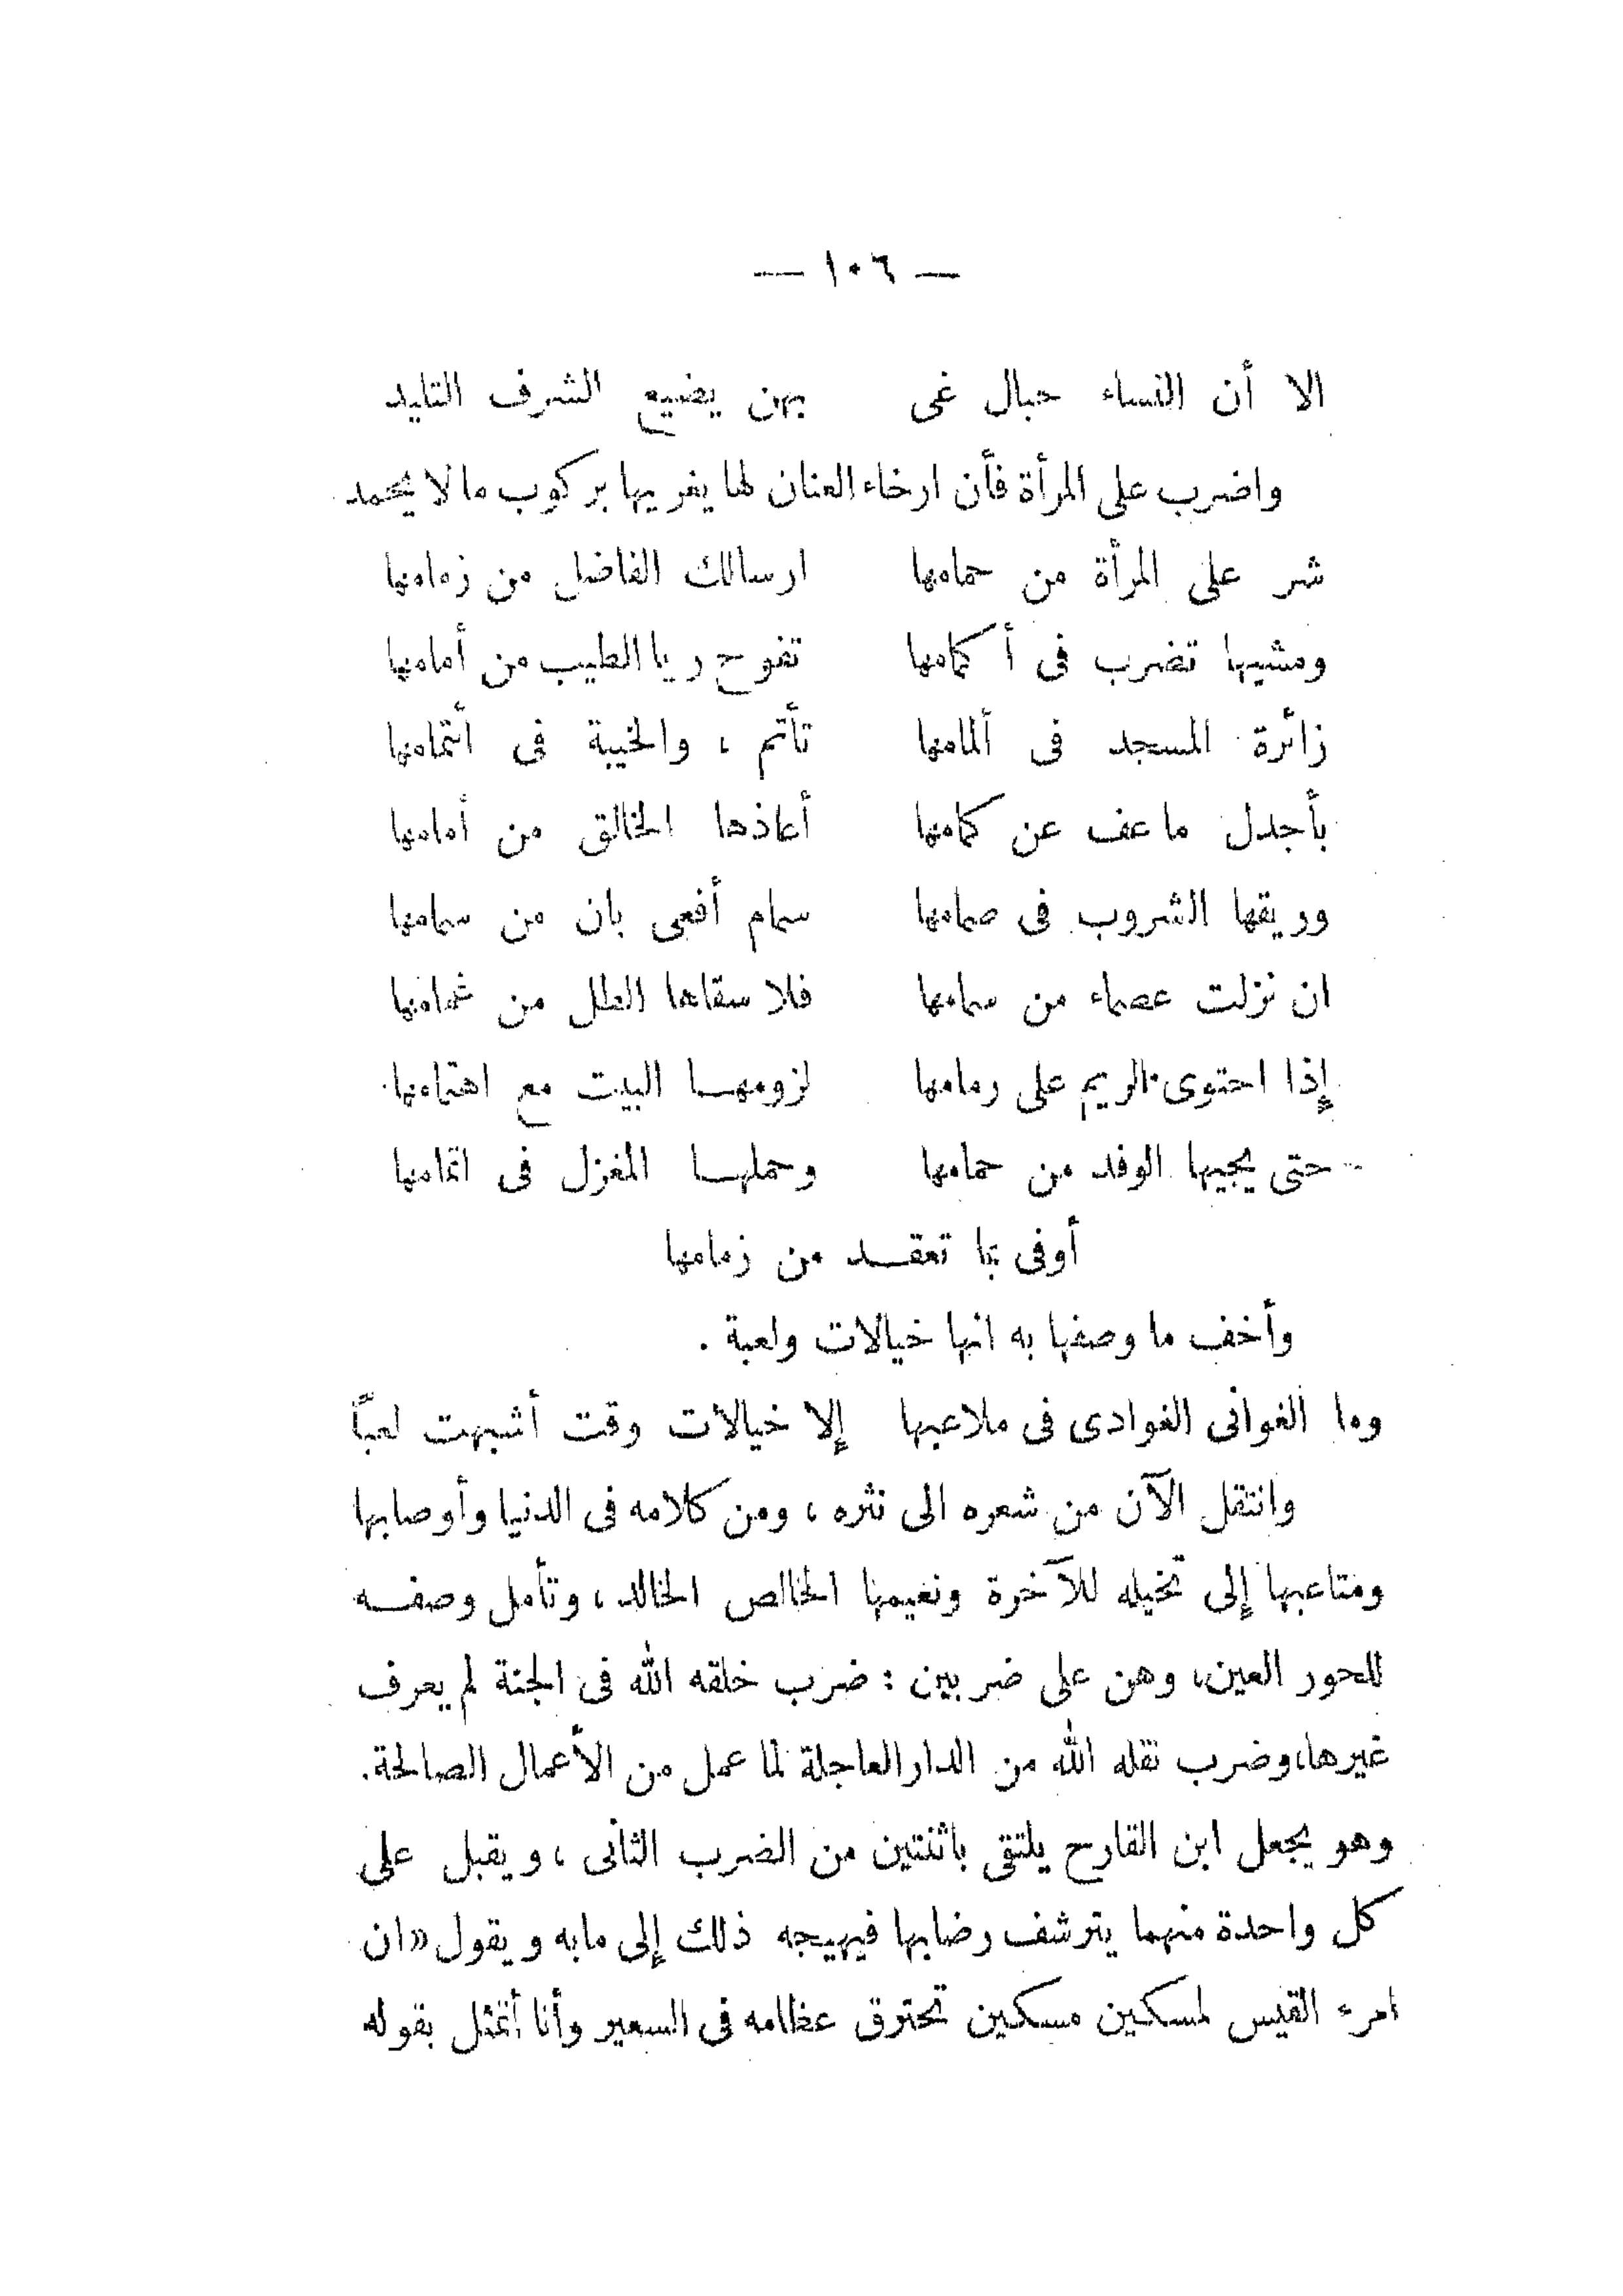 — ١٠٦ —
الا أن النساء حبال غى بهن يضيع الشرف التليد
واضرب على المرأة فأن ارخاء العنان لها يغريها بركوب مالا يحمد
شر على المرأة من حمامها ارسالك الفاضل من زمامها
ومشيها تضرب فى أكمامها تفوح ريا الطيب من أمامها
زائرة المسجد فى ألمامها تأتم ، والخيبة فى أئتمامها
بأجدل ماعف عن كمامها أعاذها الخالق من أمامها
وريقها الشروب فى صمامها سمام أفعى بان من سمامها
ان نزلت عصماء من سمامها فلا سقاها الطل من غمامها
إذا احتوى الريم على رمامها لزومها البيت مع اهتمامها
حتى يجيها الوفد من حمامها وحملها المغزل فى اتمامها
أوفى بما تعقد من زمامها
وأخف ما وصفها به انها خيالات ولعبة .
وما الغوانى الغوادى فى ملاعبها إلا خيالات وقت أشبهت لعبًا
وانتقل الآن من شعره الى نثره ، ومن كلامه فى الدنيا وأوصابها
ومتاعبها إلى تخيله للآخرة ونعيمها الخالص الخالد ، وتأمل وصفه
للحور العين، وهن على ضربين : ضرب خلقه الله فى الجنة لم يعرف
غيرها، وضرب نقله الله من الدار العاجلة لما عمل من الأعمال الصالحة.
وهو يجعل ابن القارح يلتقى باثنتين من الضرب الثانى ، ويقبل على
كل واحدة منهما يترشف رضابها فيهيجه ذلك إلى مابه ويقول «ان
امرء القيس لمسكين مسكين تحترق عظامه فى السعير وأنا أتمثل بقوله